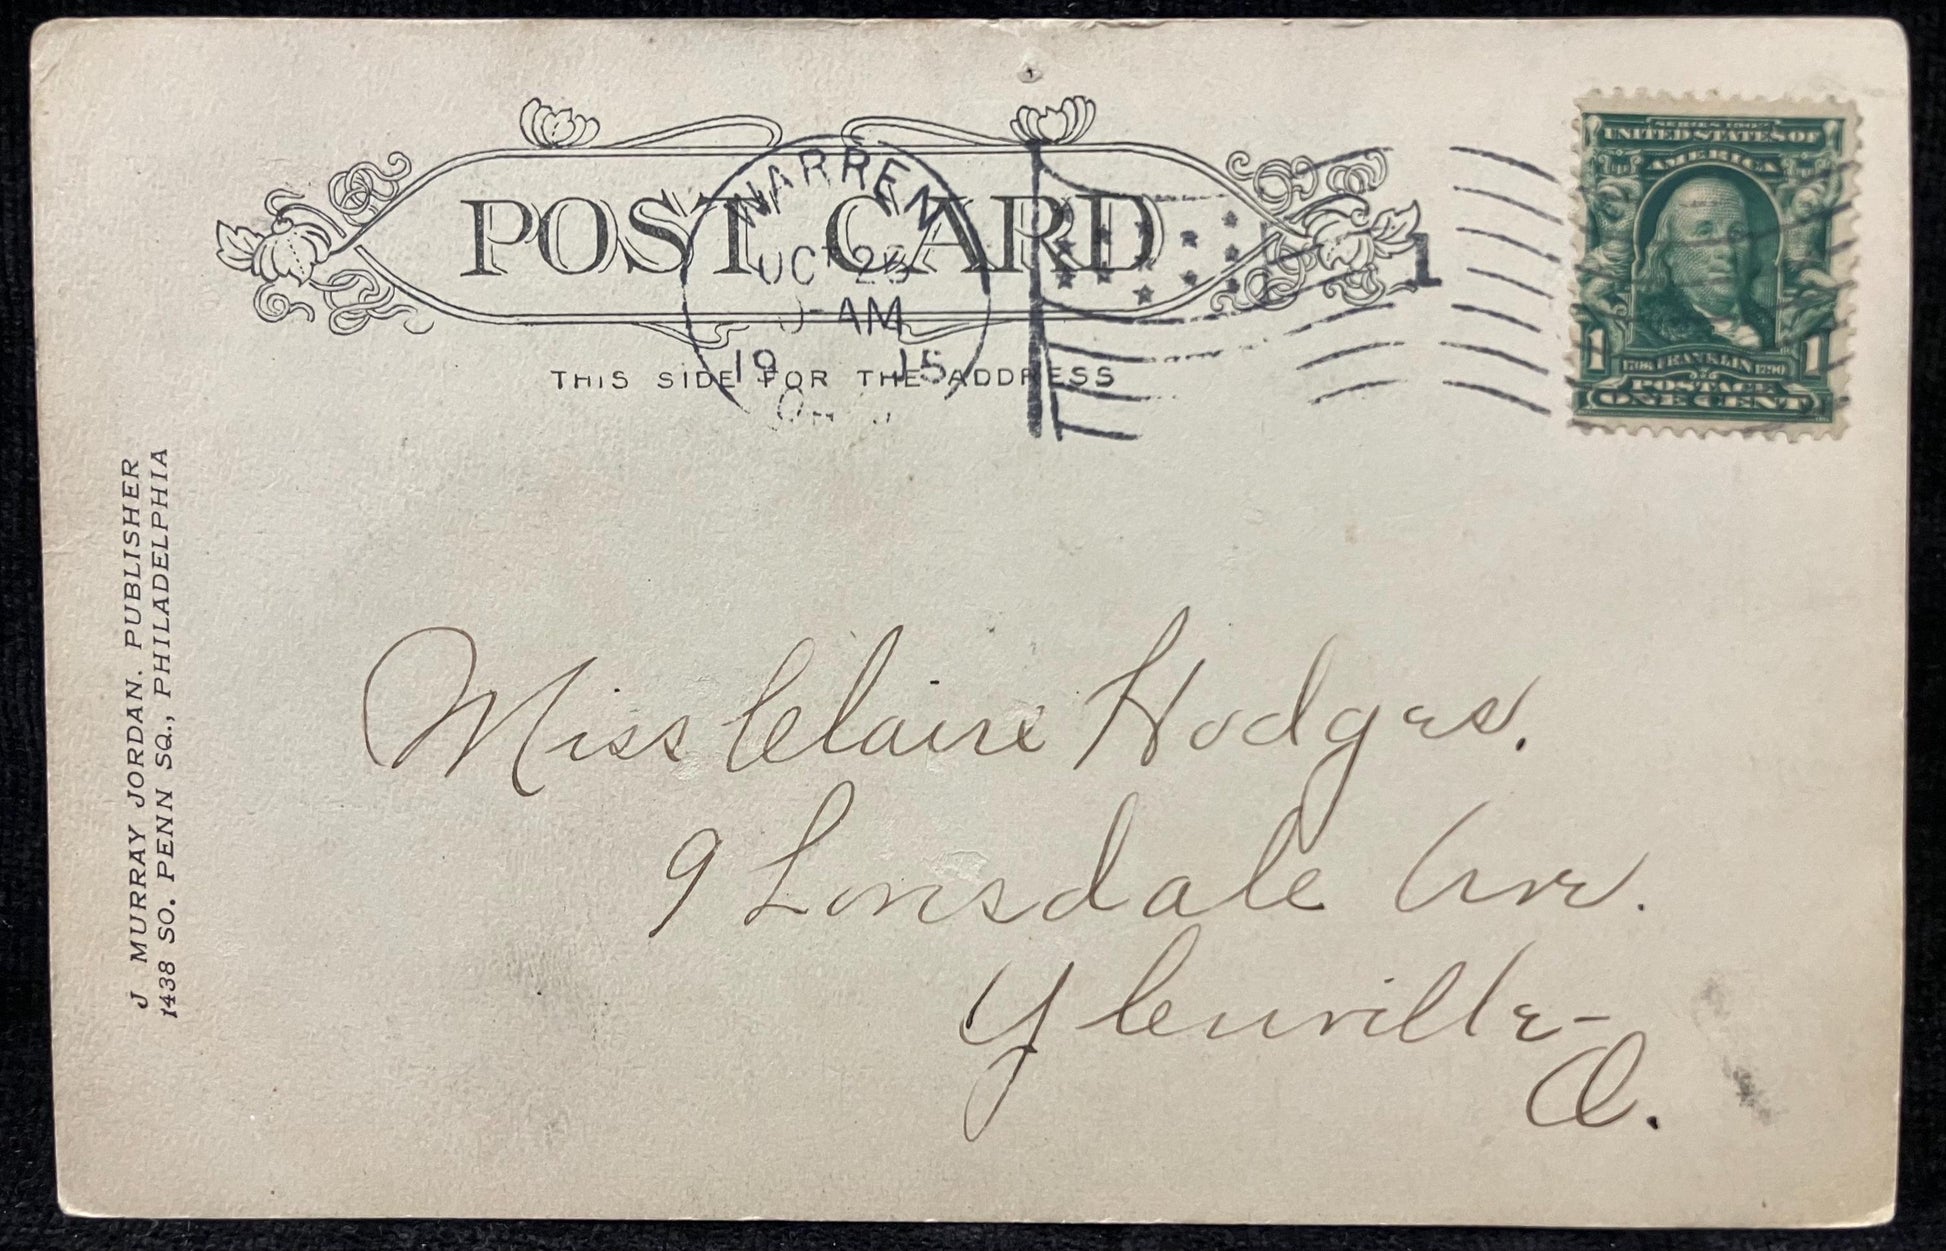 POST CARD
THIS SIDE FOR THE ADDRESS
WARREN
OCT 26
-AM
19 15
OHIO
1
SERIES 1902
UNITED STATES OF
AMERICA
1 1
1706 FRANKLIN 1790
POSTAGE
ONE CENT
J MURRAY JORDAN, PUBLISHER
1438 SO. PENN SQ., PHILADELPHIA
Miss Claire Hodges.
9 Lonsdale Ave.
Glenville-
O.